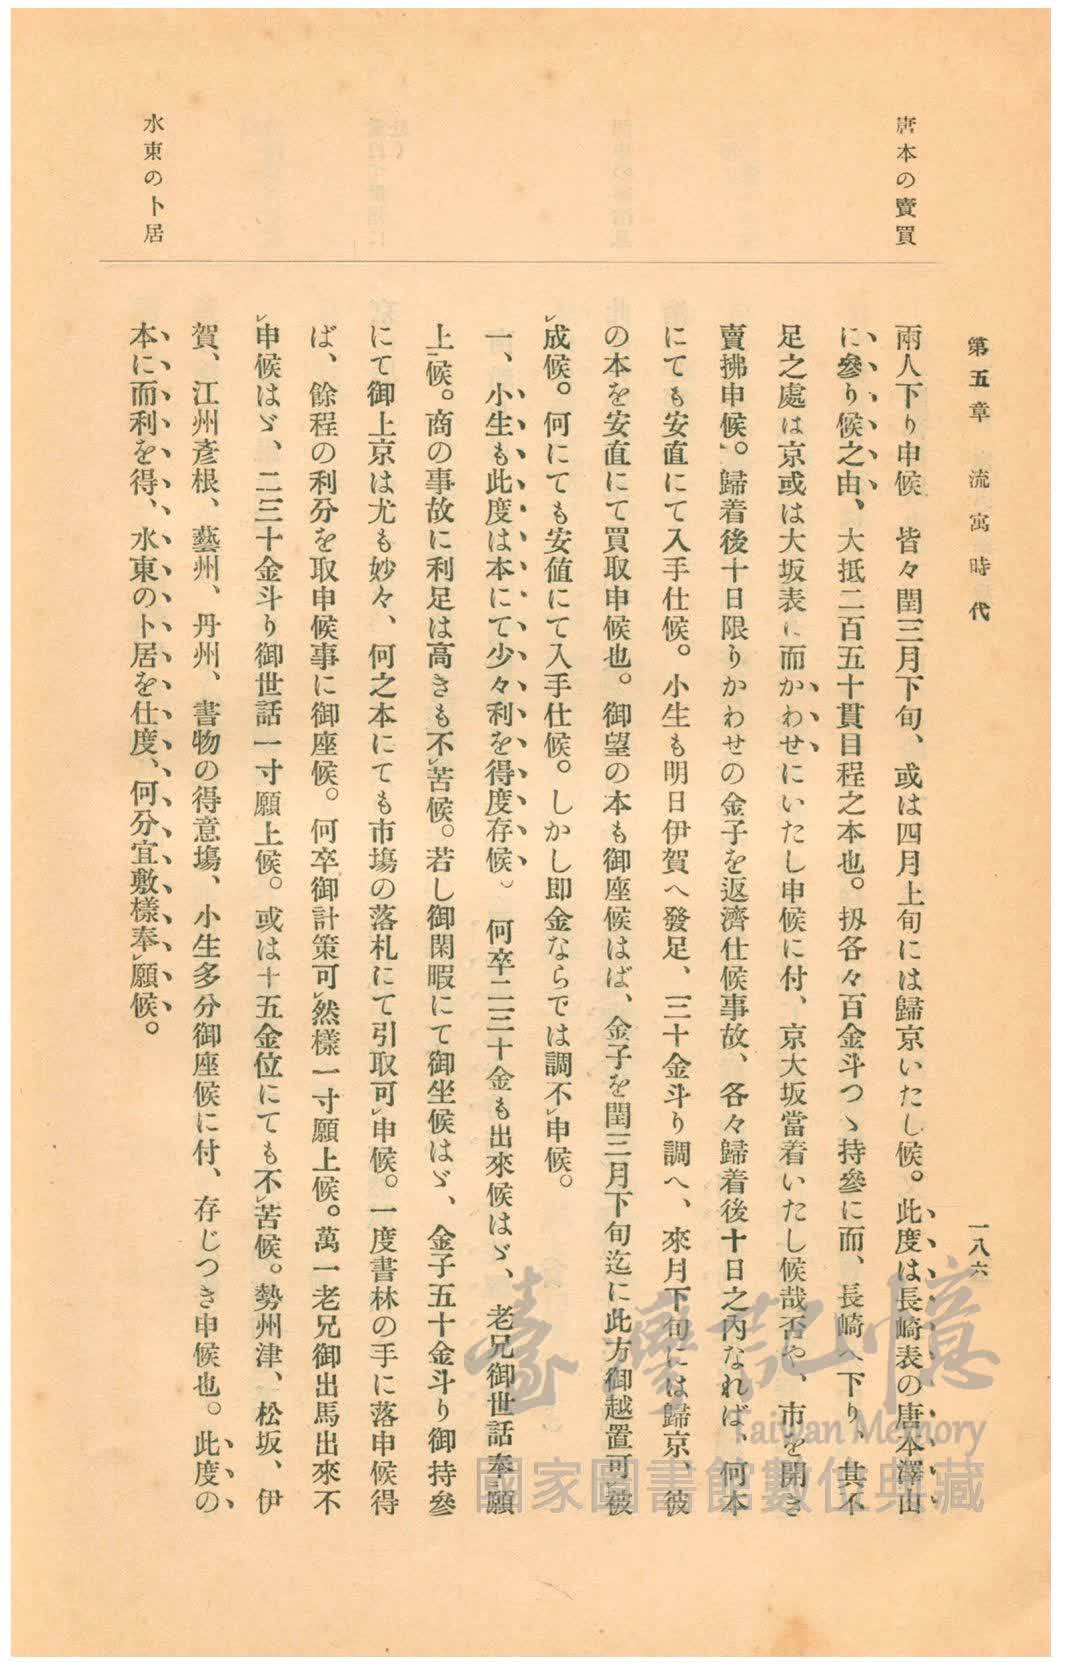 第五章　流寓時代
一八六
唐本の賣買
兩人下り申候　皆々閏三月下旬、或は四月上旬には歸京いたし候。此度は長崎表の唐本澤山
に參り候之由、大抵二百五十貫目程之本也。扨各々百金斗つゝ持參に而、長崎へ下り、其不
足之處は京或は大坂表に而かわせにいたし申候に付、京大坂當着いたし候哉否や、市を開き
賣拂申候。歸着後十日限りかわせの金子を返濟仕候事故、各々歸着後十日之內なれば、何本
にても安直にて入手仕候。小生も明日伊賀へ發足、三十金斗り調へ、來月下旬には歸京、彼
の本を安直にて買取申候也。御望の本も御座候はば、金子を閏三月下旬迄に此方御越置可㆑被
㆑成候。何にても安値にて入手仕候。しかし即金ならでは調不㆑申候。
一、小生も此度は本にて少々利を得度存候。何卒二三十金も出來候はゞ、老兄御世話奉㆑願
上候。商の事故に利足は高きも不㆑苦候。若し御閑暇にて御坐候はゞ、金子五十金斗り御持參
にて御上京は尤も妙々、何之本にても市塲の落札にて引取可㆑申候。一度書林の手に落申候得
ば、餘程の利分を取申候事に御座候。何卒御計策可㆑然樣一寸願上候。萬一老兄御出馬出來不
㆑申候はゞ、二三十金斗り御世話一寸願上候。或は十五金位にても不㆑苦候。勢州津、松坂、伊
賀、江州彥根、藝州、丹州、書物の得意塲、小生多分御座候に付、存じつき申候也。此度の
本に而利を得、水東の卜居を仕度、何分宜敷樣奉㆑願候。
水東の卜居
臺灣記憶
Taiwan Memory
國家圖書館數位典藏